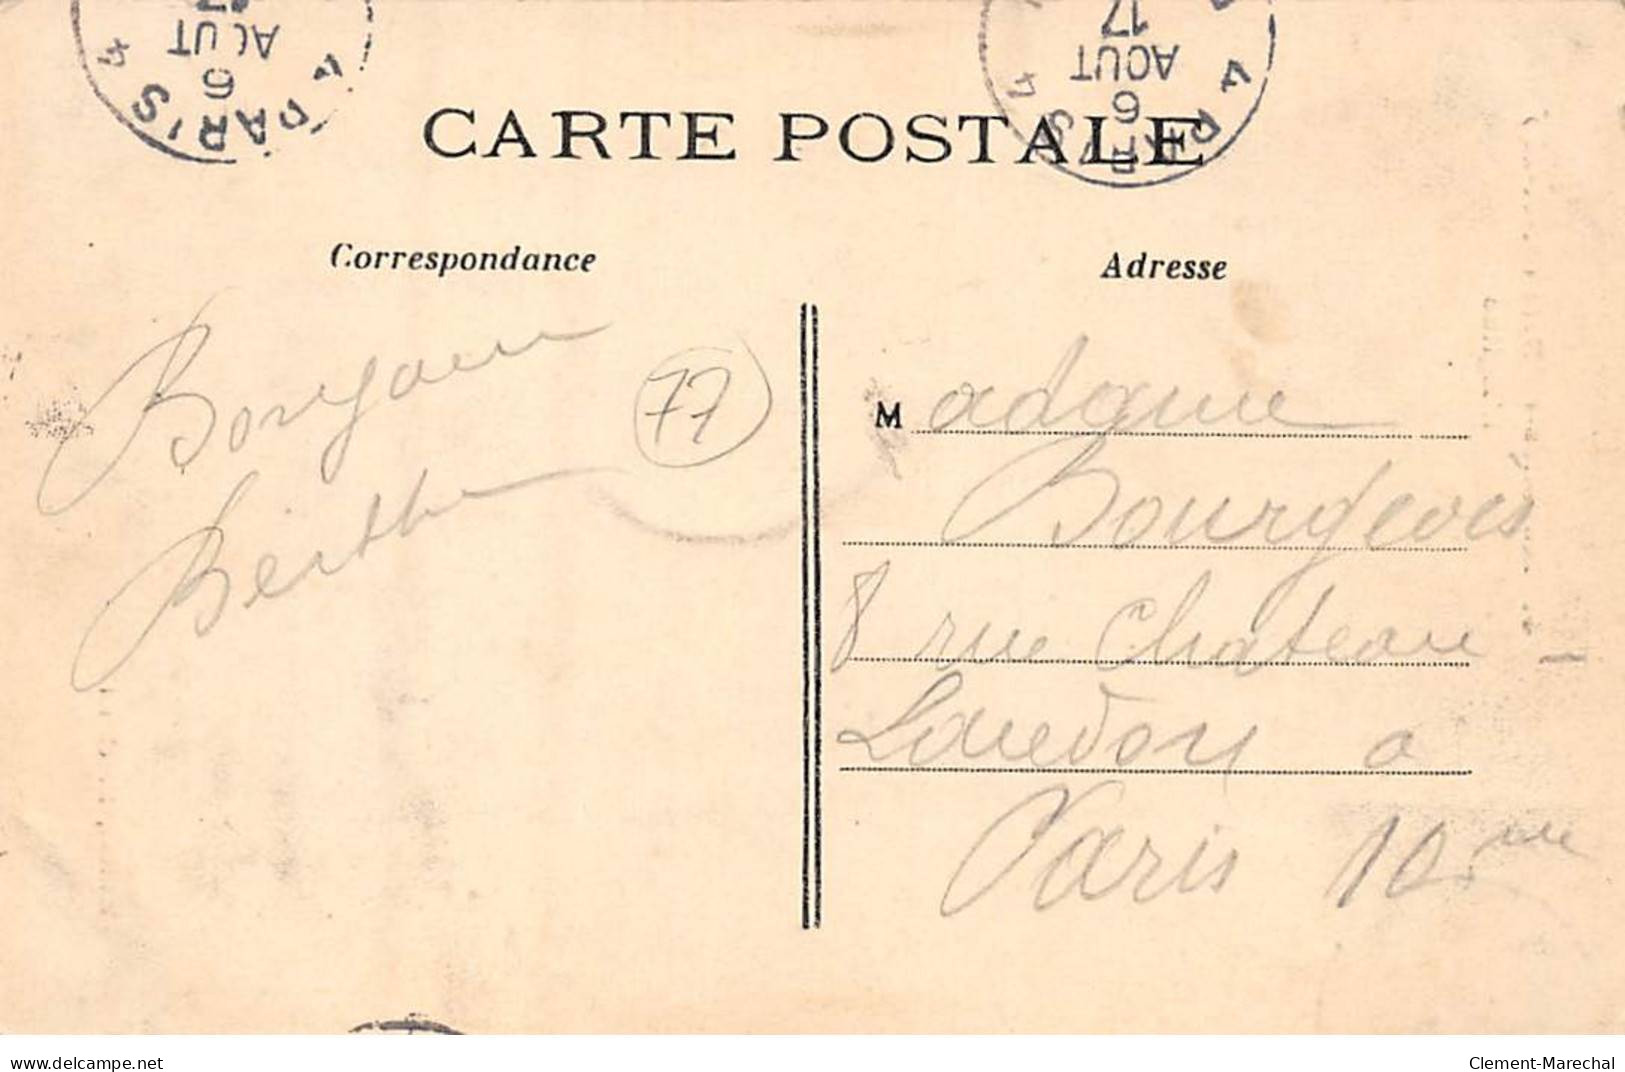 PARIS 4
6
AOUT
17
4 PARIS 4
6
AOUT
17
CARTE POSTALE
Correspondance
Adresse
Bonjour
Berthe
77
Madame
Bourgeois
8 rue Chateau
Laudon a
Paris 10me
www.delcampe.net
Clement-Marechal